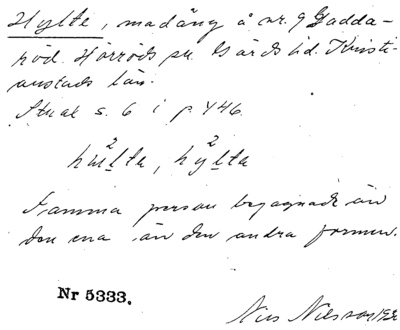 Hylte, madäng å nr. 9 Gadda-
röd. Hörröds sn. Gärds hd. Kristi-
anstads län.
Skal s. 6 i p. 446.
hultа, hylta
Samma person begagnade än
den ena än den andra formen.
Nr 5333.
Nils Nilsson